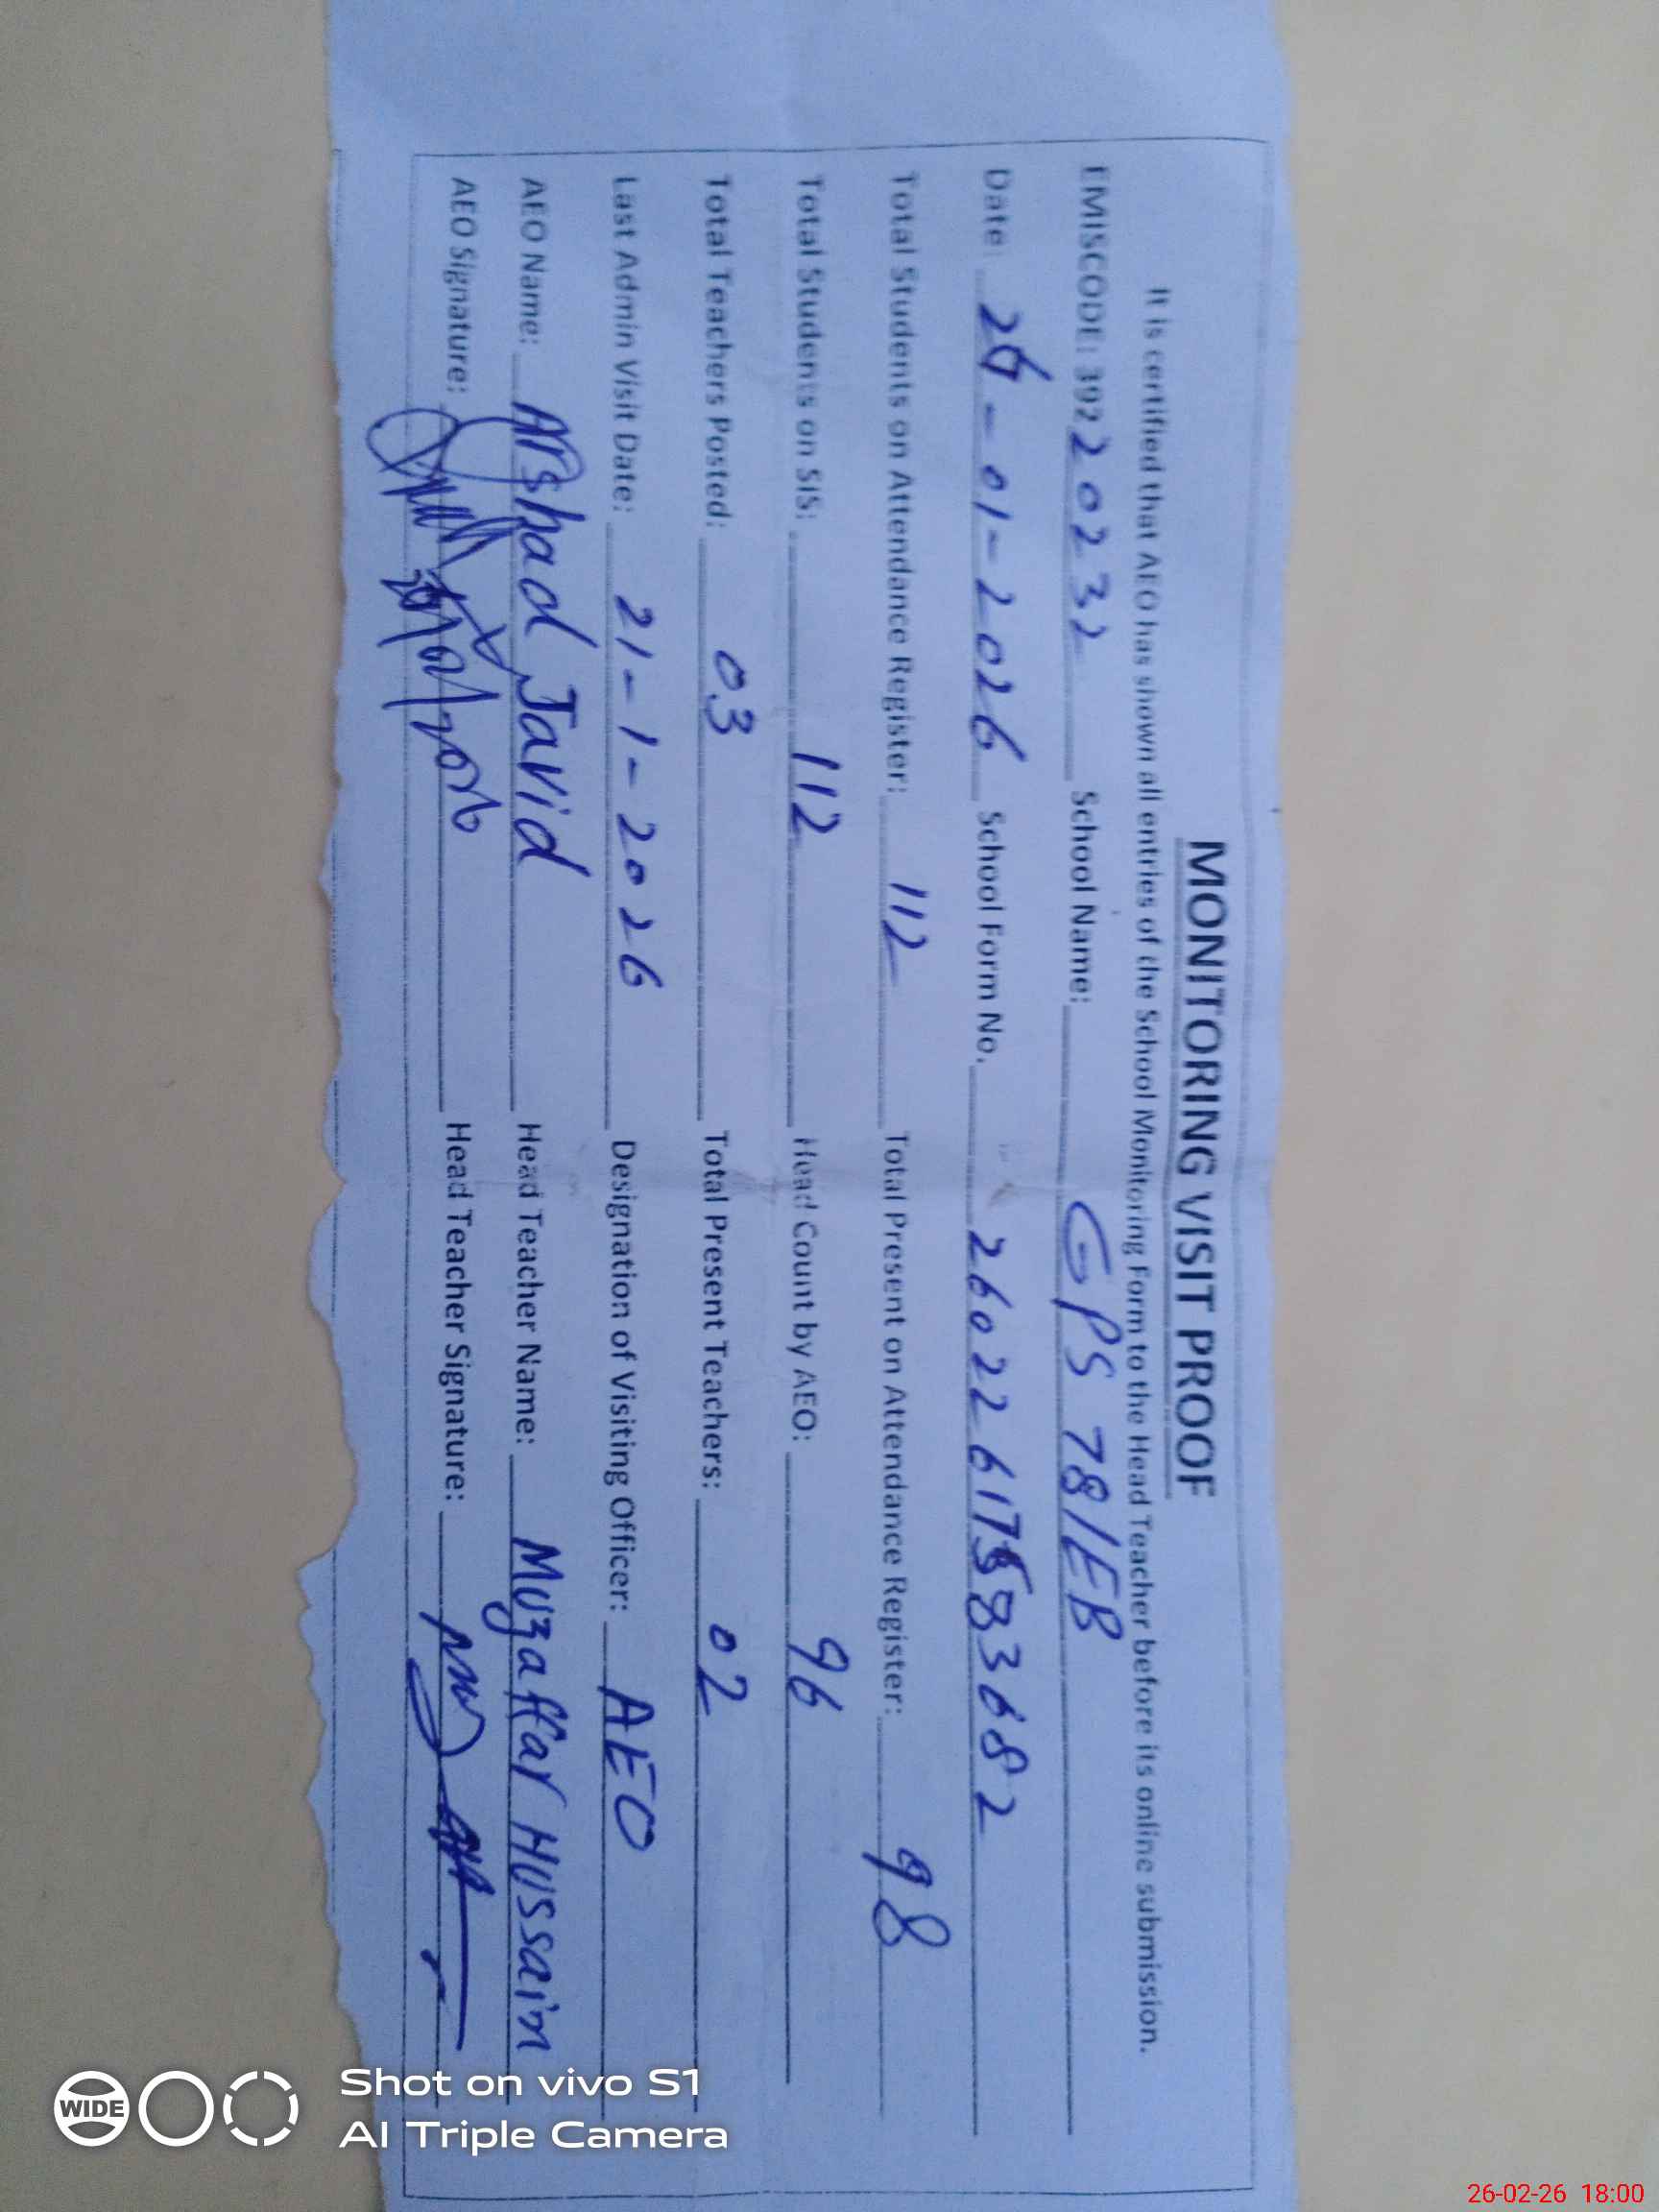 MONITORING VISIT PROOF
It is certified that AEO has shown all entries of the School Monitoring Form to the Head Teacher before its online submission.
EMISCODE: 39220232 School Name: GPS 78/EB
Date: 26-01-2026 School Form No. 26022617583682
Total Students on Attendance Register: 112 Total Present on Attendance Register: 98
Total Students on SIS: 112 Head Count by AEO: 96
Total Teachers Posted: 03 Total Present Teachers: 02
Last Admin Visit Date: 21-1-2026 Designation of Visiting Officer: AEO
AEO Name: Arshad Javid Head Teacher Name: Muzaffar Hussain
AEO Signature: Head Teacher Signature:
WIDE
Shot on vivo S1
AI Triple Camera
26-02-26 18:00